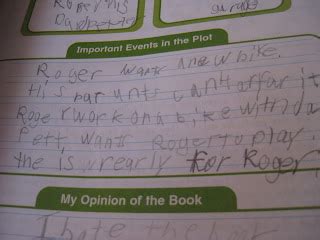 Important Events in the Plot
Roger wants anew bike.
His parunts cant affar it
Roge rwork on a bike with da
Pett wants Roger to play.
the is rearly for Roger
My Opinion of the Book
I hate the book